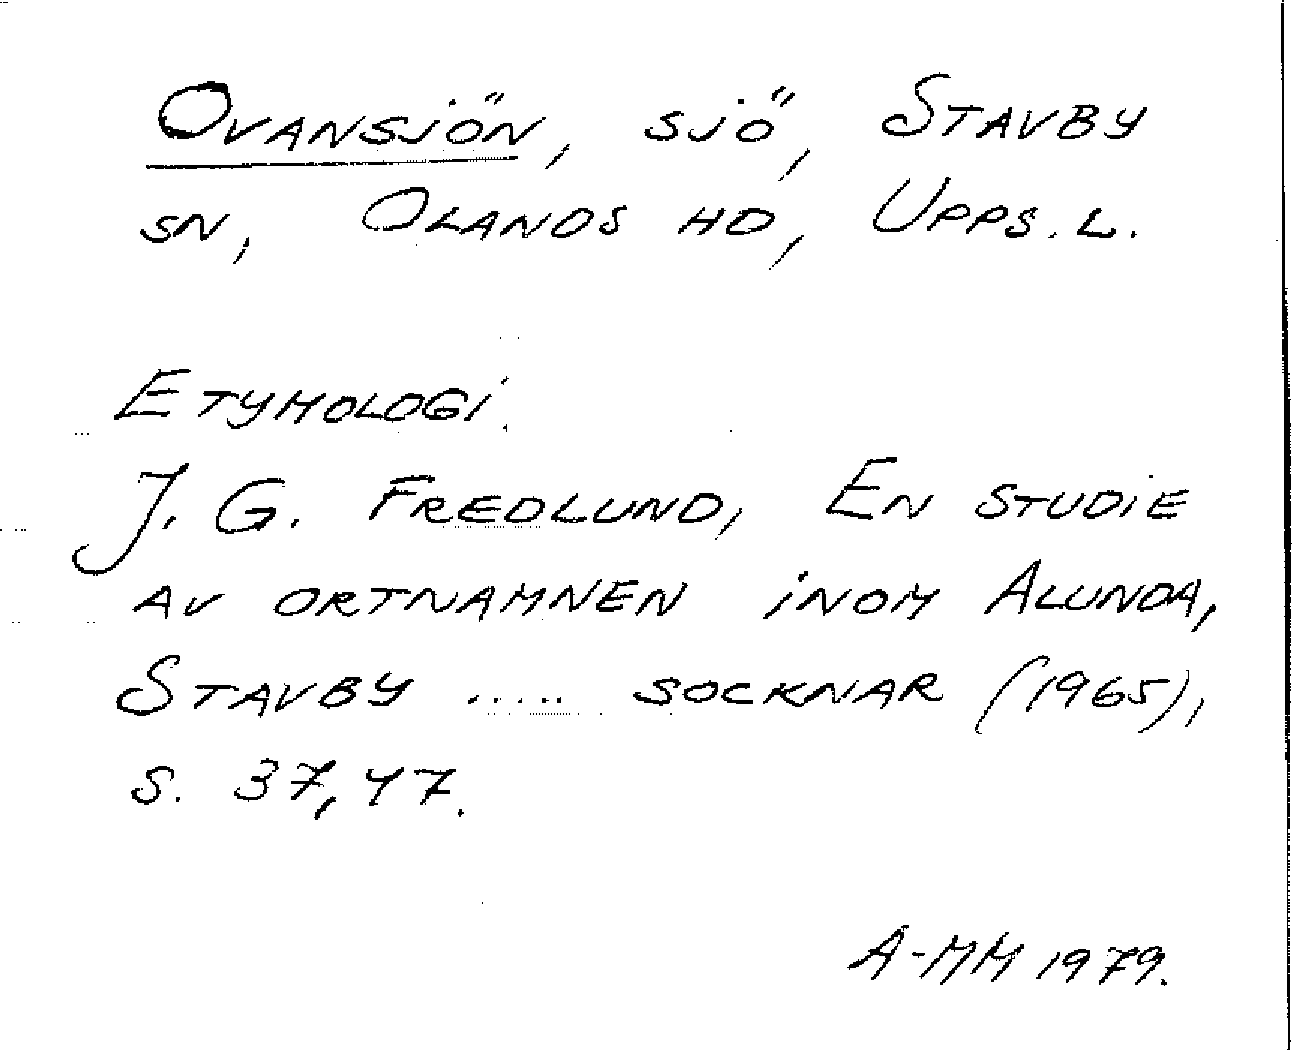 Ovansjön, sjö, Stavby
sn, Olands hd, Upps. l.
Etymologi.
J. G. Fredlund, En studie
av ortnamnen inom Alunda,
Stavby ..... socknar (1965),
s. 37, 47.
A-MM 1979.